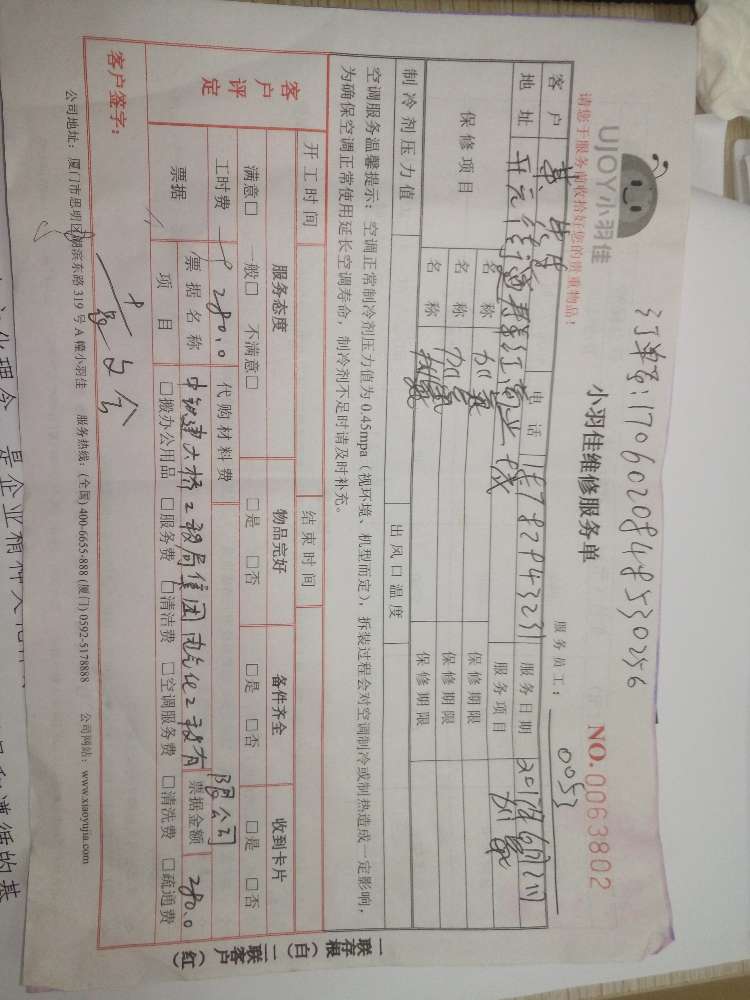 订单号:17060208448530256
UJOY小羽佳
小羽佳维修服务单
NO.0063802
请您于服务前收拾好您的贵重物品!
服务员工: 0053
客户 电话 18782943231 服务日期
地址 服务项目 加氟
保修项目 名称 加氟 保修期限
名称 保修期限
名称 保修期限
制冷剂压力值 出风口温度
空调服务温馨提示:空调正常制冷剂压力值为0.45mpa(视环境、机型而定),拆装过程会对空调制冷或制热造成一定影响,
为确保空调正常使用延长空调寿命,制冷剂不足时请及时补充。
开工时间 结束时间
客户评定
服务态度 物品完好 备件齐全 收到卡片
满意□ 一般□ 不满意□ □是 □否 □是 □否 □是 □否
工时费 280.0 代购材料费
票据 票据名称 中铁建大桥工程局集团电气化工程有限公司 票据金额 280.0
项目 □搬办公用品 □服务费 □清洁费 □空调服务费 □清洗费 □疏通费
客户签字:
公司地址:厦门市思明区湖滨东路319号A幢小羽佳 服务热线:(全国)400-6655-888(厦门)0592-5178888 公司网站:www.xiaoyujia.com
一联存根(白) 二联客户(红)
化理念,是企业精神文化
遵循的基